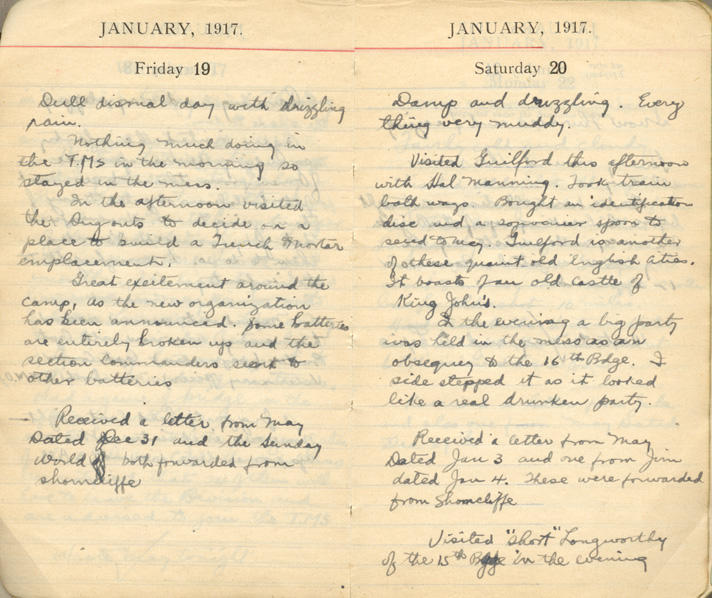 JANUARY, 1917.
Friday 19
Dull dismal day with drizzling
rain.
Nothing much doing in
the T.M's in the morning so
stayed in the mess.
In the afternoon visited
the Dugouts to decide on a
place to build a Trench Mortar
emplacement.
Great excitement around the
camp, as the new organization
has been announced. Some batteries
are entirely broken up and the
section commanders sent to
other batteries
Received a letter from May
Dated Dec 31 and the Sunday
World both forwarded from
Shorncliffe
JANUARY, 1917.
Saturday 20
Damp and drizzling. Every
thing very muddy.
Visited Guilford this afternoon
with Hal Manning. Took train
both ways. Bought an identification
disc and a souvenier spoon to
send to May. Guilford is another
of these quaint old English cities.
It boasts of an old castle of
King John's.
In the evening a big party
was held in the mess as an
obsequey to the 16th Bdge. I
side stepped it as it looked
like a real drunken party.
Received a letter from May
Dated Jan 3 and one from Jim
dated Jan 4. These were forwarded
from Shorncliffe
Visited "Short" Longworthy
of the 15th Bdge in the evening